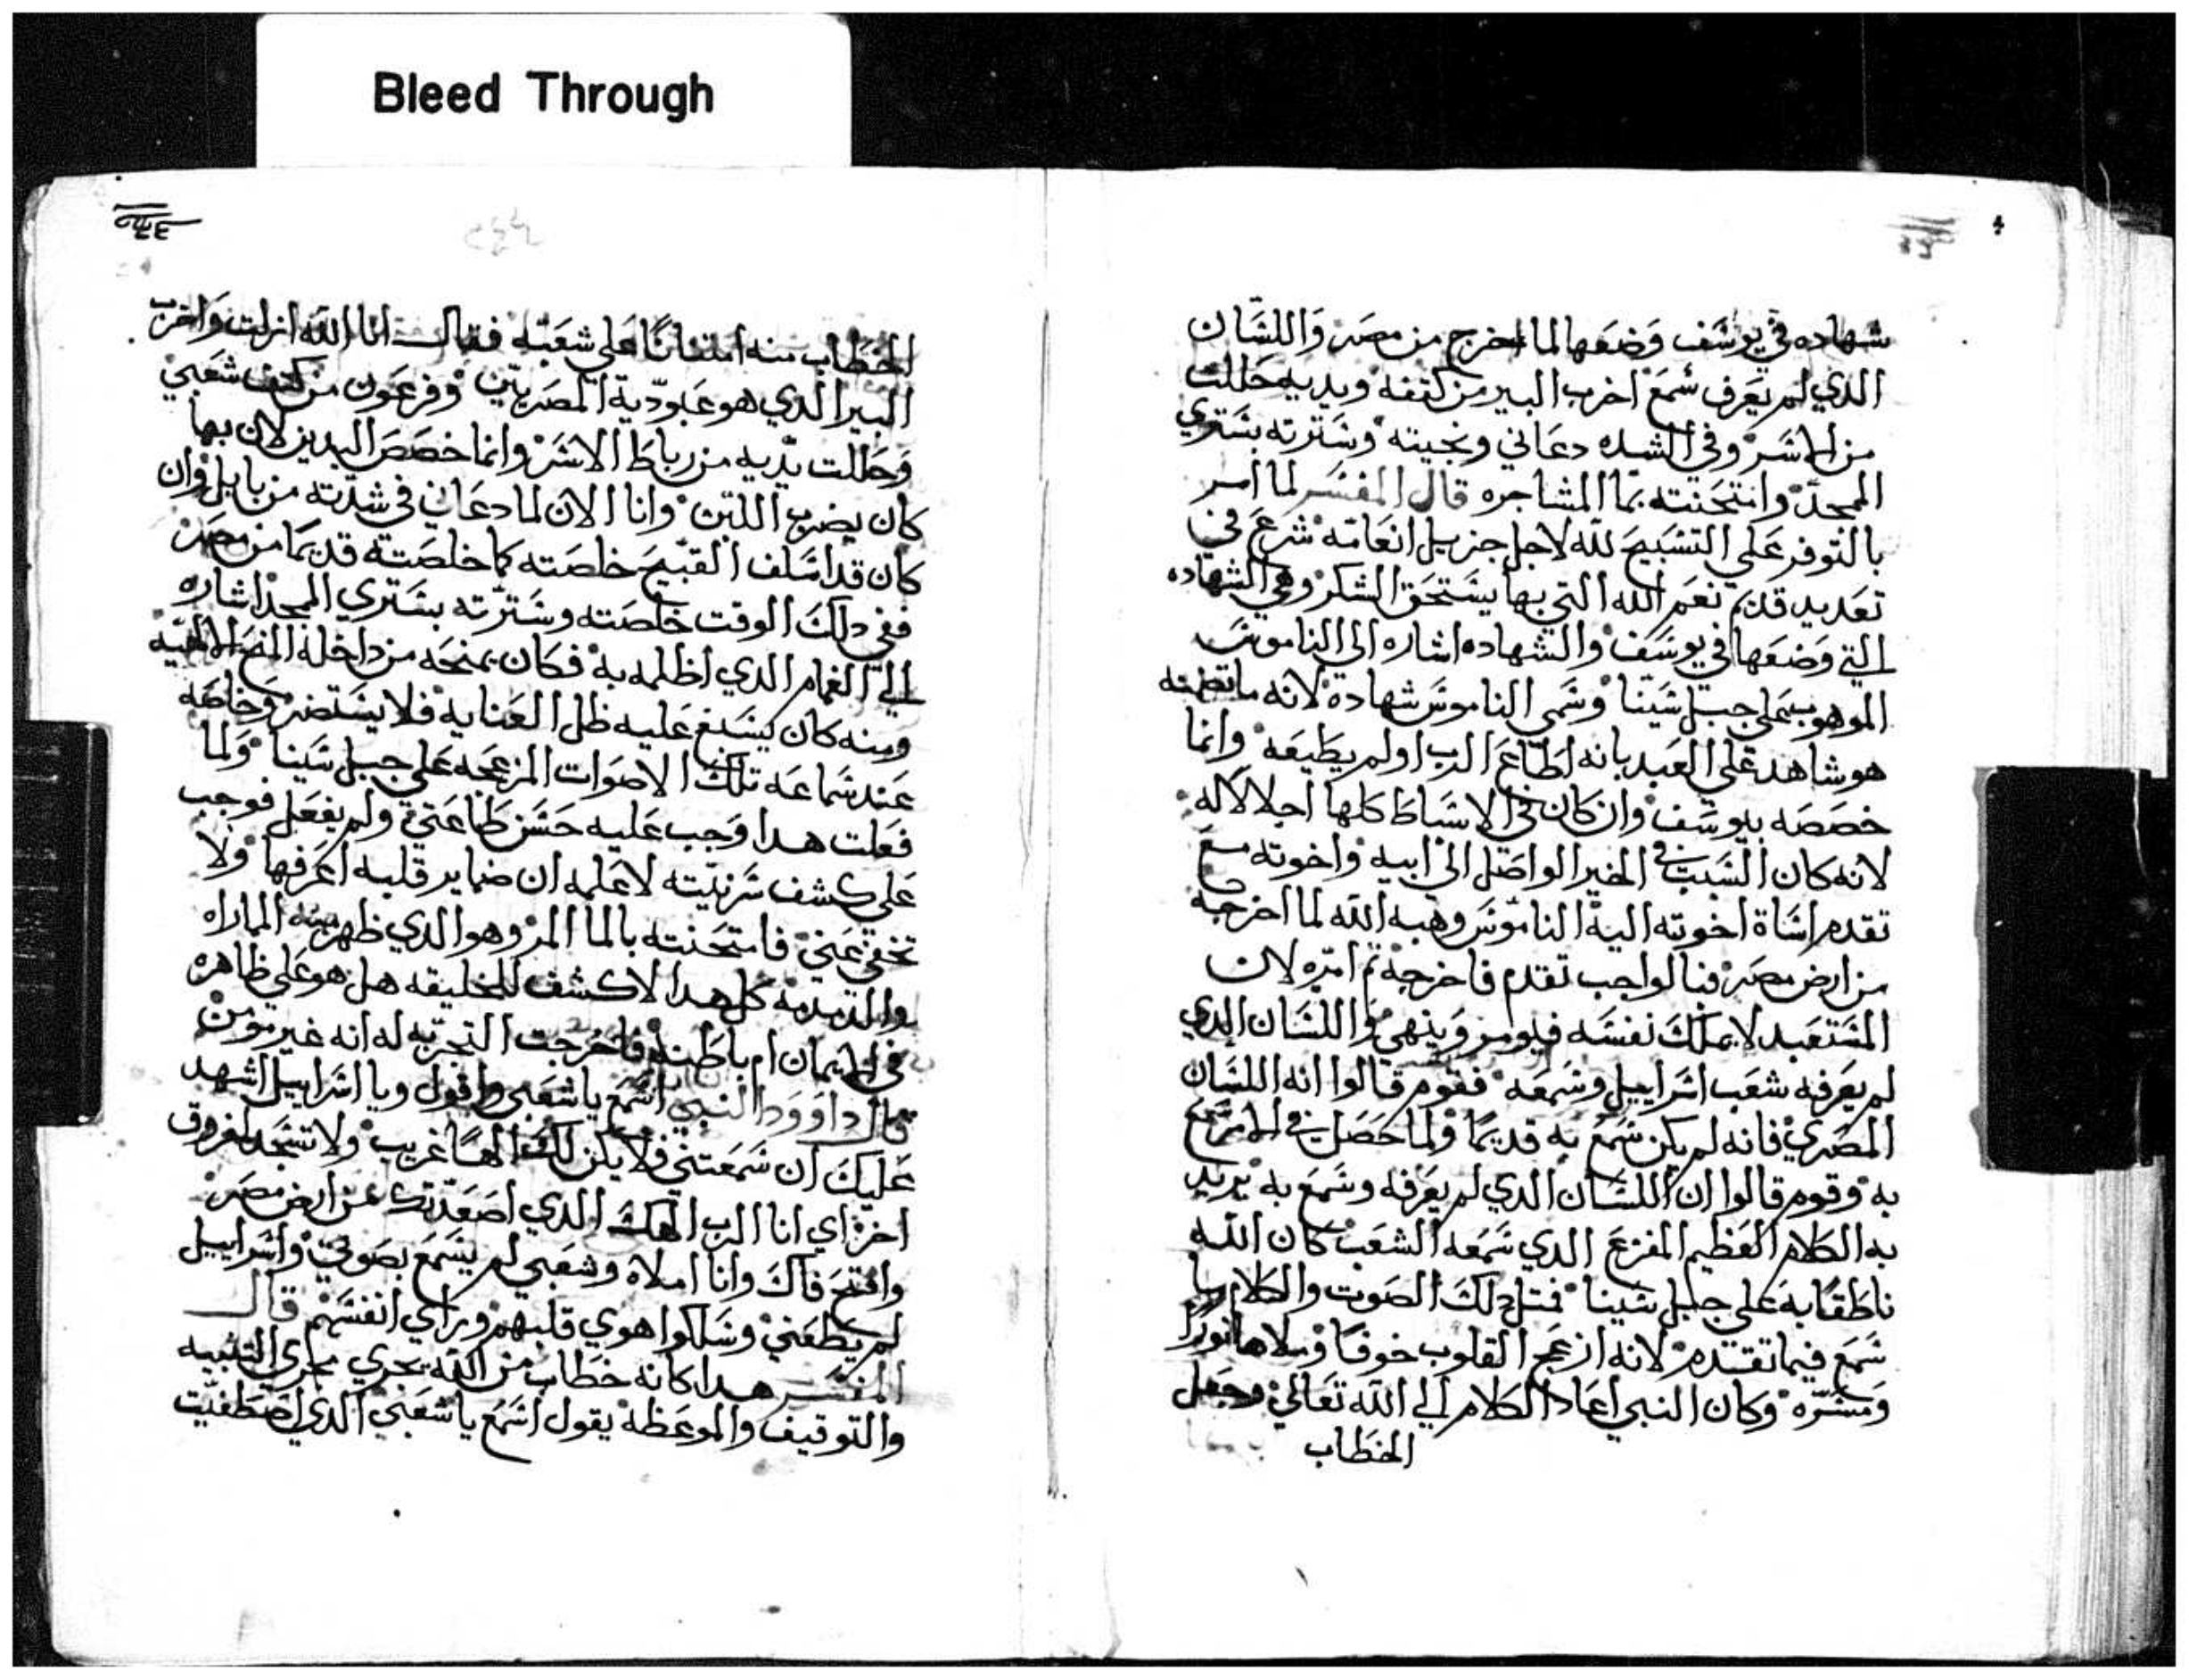 Bleed Through
شهاده في يوسف وضعها لما اخرج من مصر واللسان
الدي لم يعرف سمع اخرب البير من كتفه ويديه حللت
من الاسر وفي الشده دعاني ونجيته وسترته بستري
الممجد وامتحنته بما المشاجره قال المفسر لما امر
بالتوفر علي التسبيح لله لاجل جزيل انعامه شرع في
تعديد قديم نعم الله التي بها يستحق الشكر وهي الشهاده
التي وضعها في يوسف والشهاده اشاره الي الناموس
الموهوب علي جبل سينا وسمي الناموس شهادة لانه ماتضمنه
هو شاهد علي العبد بانه اطاع الرب اولم يطيعه وانما
خصصه بيوسف وان كان في الاسباط كلها اجلالاله
لانه كان السبب في الخير الواصل الي ابيه واخوته مع
تقدم اساة اخوته اليه الناموس وهبه الله لما اخرجه
من ارض مصر فبالواجب تقدم فاخرجه ثم امره لان
المستعبد لا يملك نفسه فيومر وينهي واللسان الدي
لم يعرفه شعب اسراييل وسمعه فقوم قالوا انه اللسان
المصري فانه لم يكن سمع به قديما ولما حصل في الاسر سمع
به وقوم قالوا ان اللسان الدي لم يعرفه وسمع به يريد
به الكلام العظيم المفزع الدي سمعه الشعب كان الله
ناطقا به علي جبل سينا فمتل دلك الصوت والكلام ما
سمع فيما تقدم لانه ازعج القلوب خوفا وملاها نورا
ومسره وكان النبي اعاد الكلام الي الله تعالي وجعل
الخطاب
الخطاب منه امتنانا علي شعبه فقال انا الله ازلت واخرب
البير الدي هو عبودية المصريين وفرعون من كتف شعبي
وحللت يديه من رباط الاسر وانما خصص اليدين لان بها
كان يضرب اللبن وانا الان لما دعاني في شدته من بابل وان
كان قد اسلف القبيح خلصته كما خلصته قديما من مصر
ففي دلك الوقت خلصته وسترته بستري الممجد اشاره
الي الغمام الدي اظلمه به فكان يمنحه من داخله المنح الالهيه
ومنه كان يسبغ عليه ظل العنايه فلا يستضر وخاصه
عند سماعه تلك الاصوات المزعجه علي جبل سينا ولما
فعلت هدا وجب عليه حسن طاعتي ولم يفعل فوجب
علي كشف سر نيته لاعلمه ان ضماير قلبه اعرفها ولا
تخفي عني فامتحنته بالما المر وهو الدي ظهر منه الماراه
والتدمدمه كل هدا لاكشف للخليقه هل هو علي ظاهره
في الايمان ام باطنه فاخرجت التجربه له انه غير مومن
قال داوود النبي اسمع يا شعبي فاقول ويا اسراييل اشهد
عليك ان سمعتني فلا يكن لك الها غريب ولا تسجد لمعروف
اخر اي انا الرب الهك الدي اصعدتك من ارض مصر
وافتح فاك وانا املاه وشعبي لم يسمع بصوتي واسراييل
لم يطعني وسلكوا هوي قلبهم وراي انفسهم قال
المفسر هدا كانه خطاب من الله يجري مجري التنبيه
والتوقيف والموعظه يقول اسمع يا شعبي الدي اصطفيت